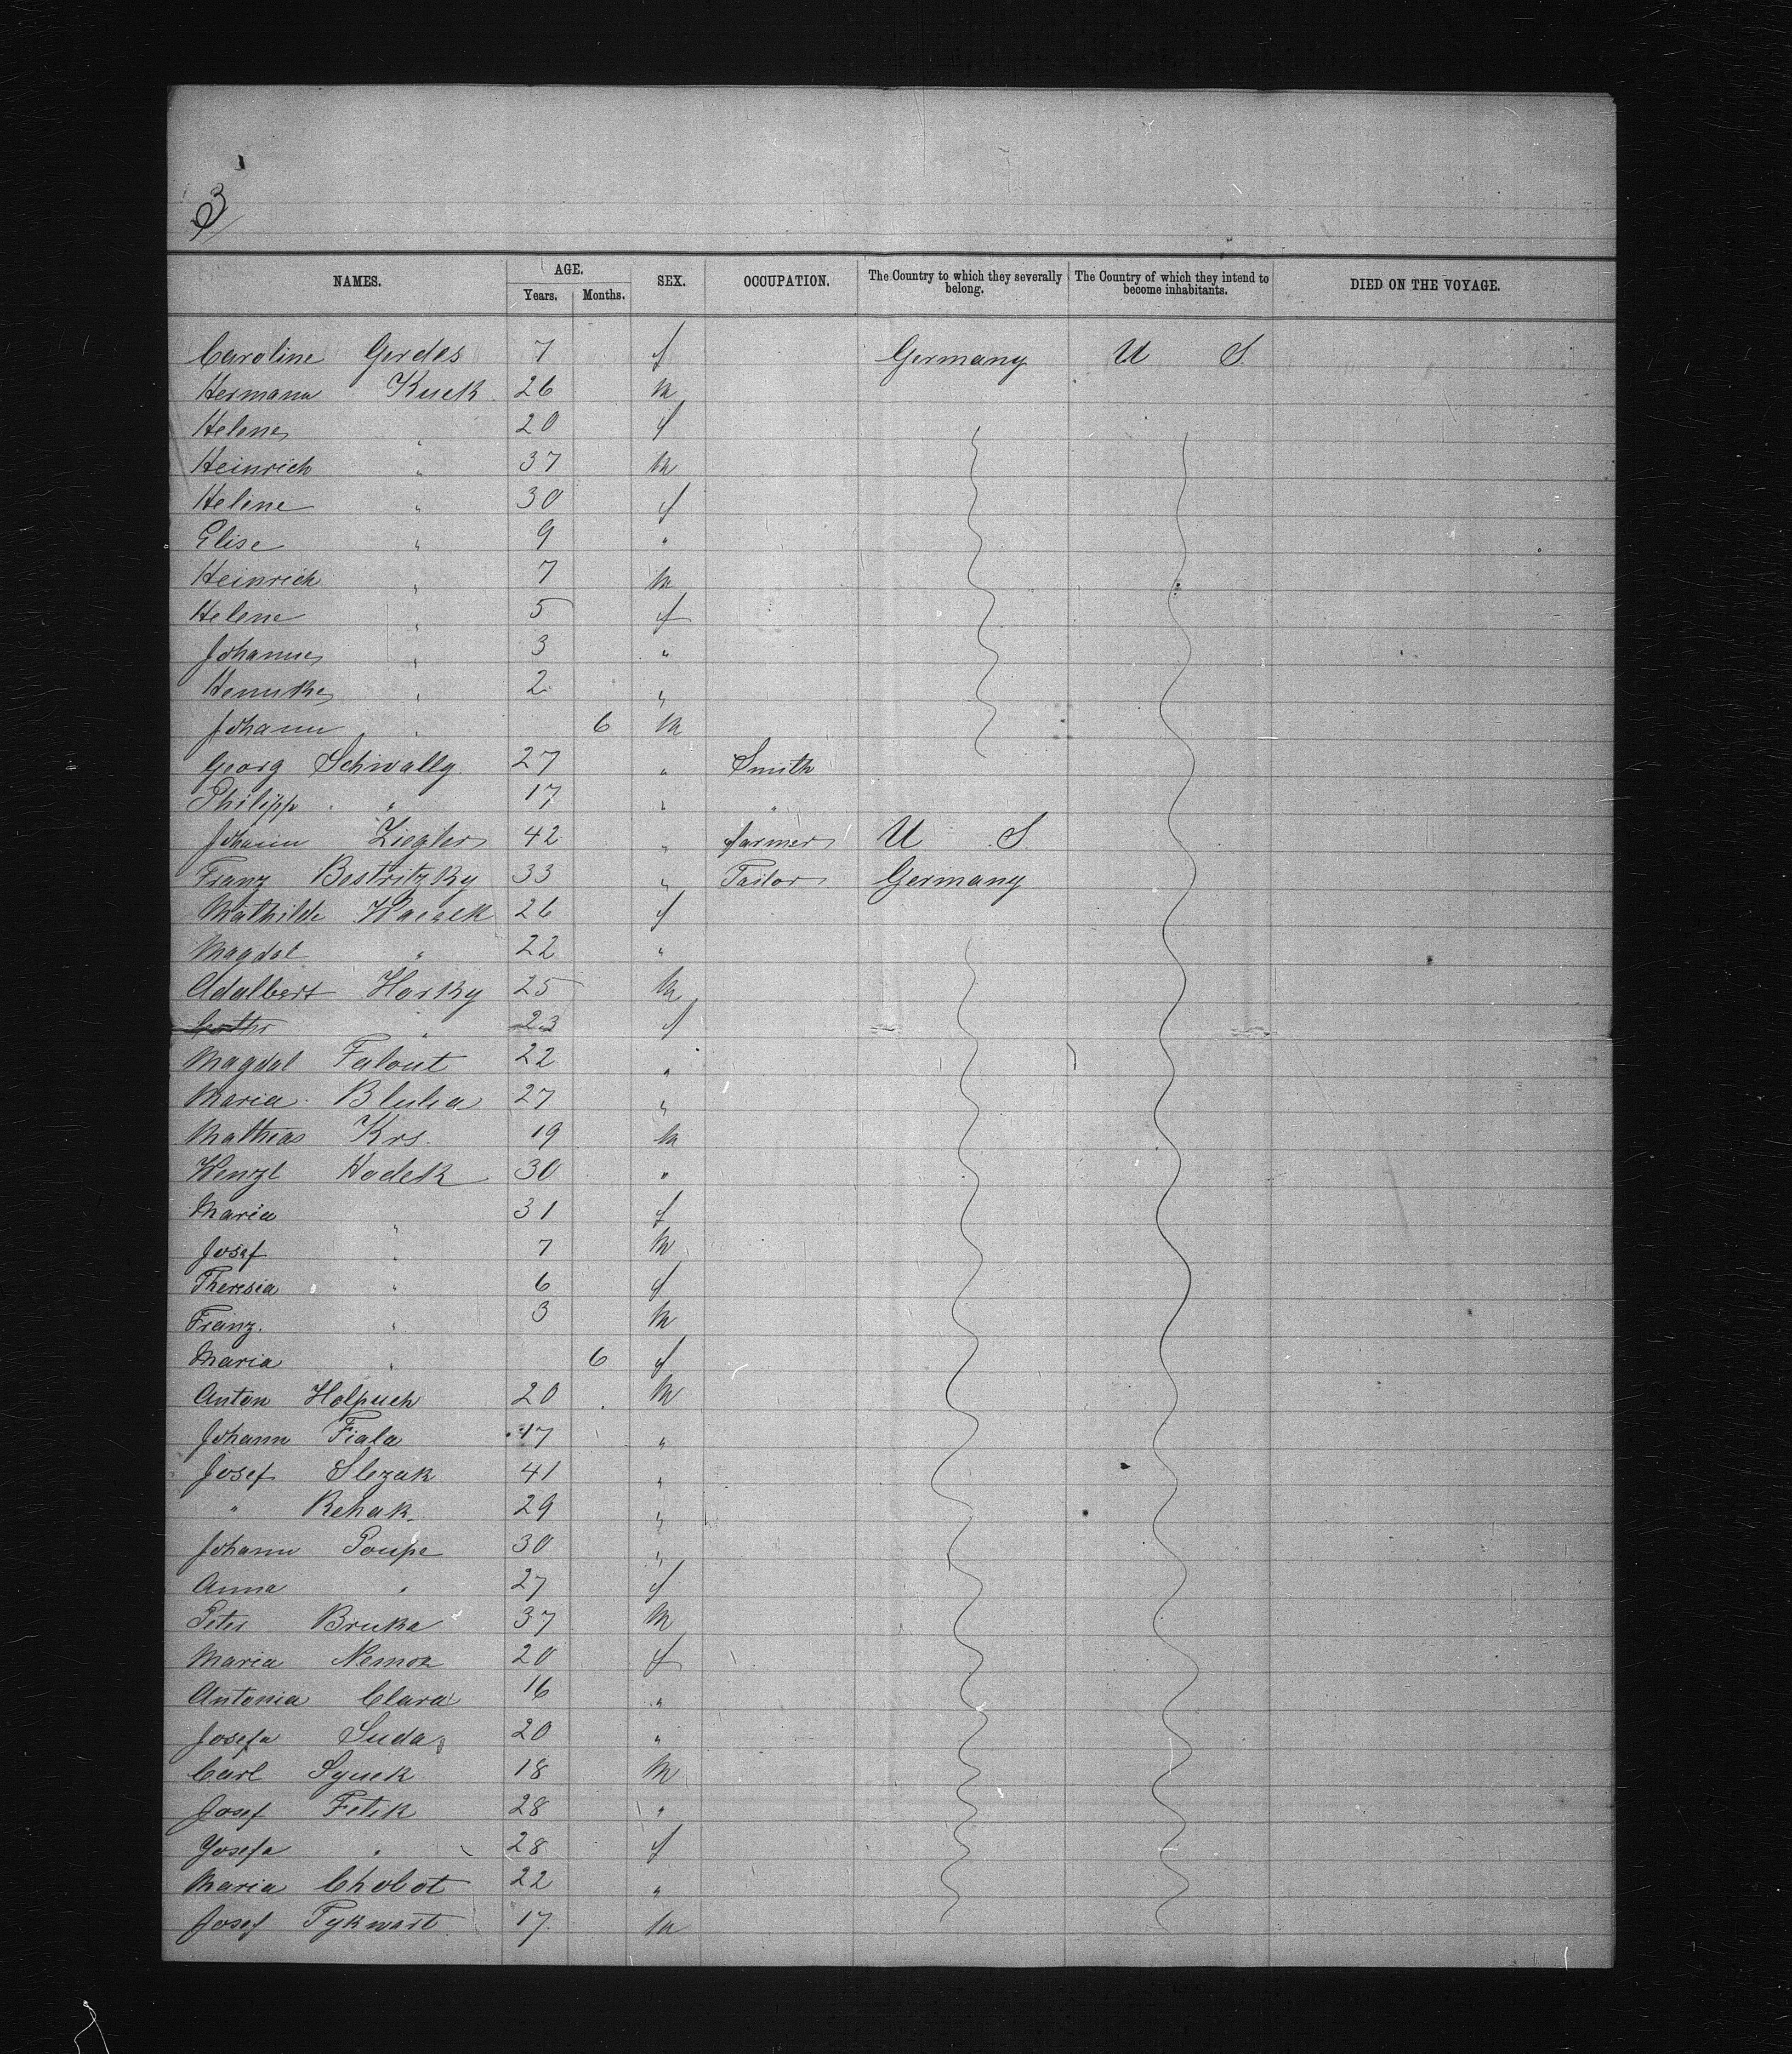 3
NAMES. AGE. SEX. OCCUPATION. The Country to which they severally belong. The Country of which they intend to become inhabitants. DIED ON THE VOYAGE.
Years. Months.
Caroline Gerdes 7 f Germany U S.
Hermann Kuck 26 m
Helene " 20 f
Heinrich " 37 m
Helene " 30 f
Elise " 9 "
Heinrich " 7 m
Helene " 5 f
Johanne " 3 "
" 2 "
Johann " 6 m
Georg Schwally 27 " Smith
Philipp " 17 " "
Johann Ziegler 42 " farmer U S.
Franz Bestritzky 33 " Tailor Germany
Mathilde 26 f
Magdal " 22 "
Adalbert Horky 25 m
" 23 f
Magdal Falout 22 "
Maria 27 "
Mathias Krs. 19 m
Wenzl Hodek 30 "
Maria " 31 f
Josef " 7 m
Theresia " 6 f
Franz. " 3 m
Maria " 6 f
Anton Holpuch 20 m
Johann Fiala 17 "
Josef Slezak 41 "
" Rehak. 29 "
Johann Poupe 30 "
Anna " 27 f
Peter Bruka 37 m
Maria 20 f
Antonia Clara 16 "
Josefa Suda 20 "
Carl 18 m
Josef Fetik 28 "
Josefa " 28 f
Maria Chobot 22 "
Josef Tykwart 17. m